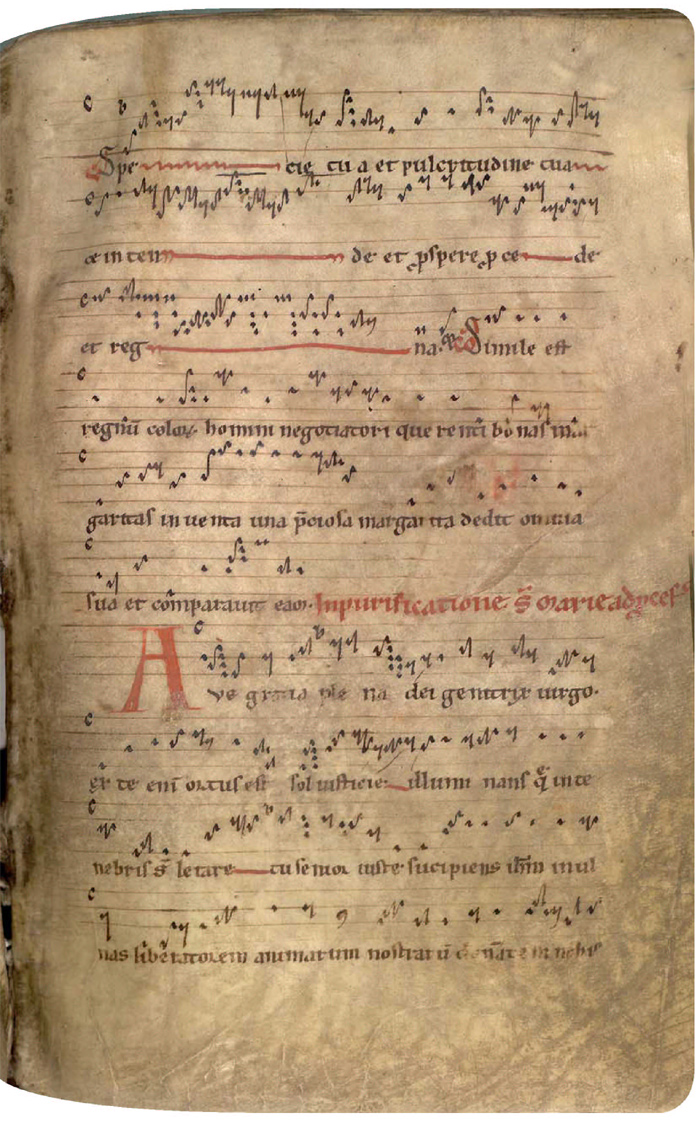 Spe cie tu a et pulcritudine tua
intem de et pspere p ce de
et reg na. Simile est
regnū celor homini negotiatori querenti bonas mar
garitas inuenta una pciosa margarita dedit omnia
sua et comparauit eam. In purificatione s̄ marie ad pcess
Ave gratia ple na dei genitrix uirgo.
ex te eni ortus est sol iusticie illumi nans q̄ in te
nebris s̄ letare tu senior iuste sucipiens ihm in ul
nas liberatorem animarum nostrarū